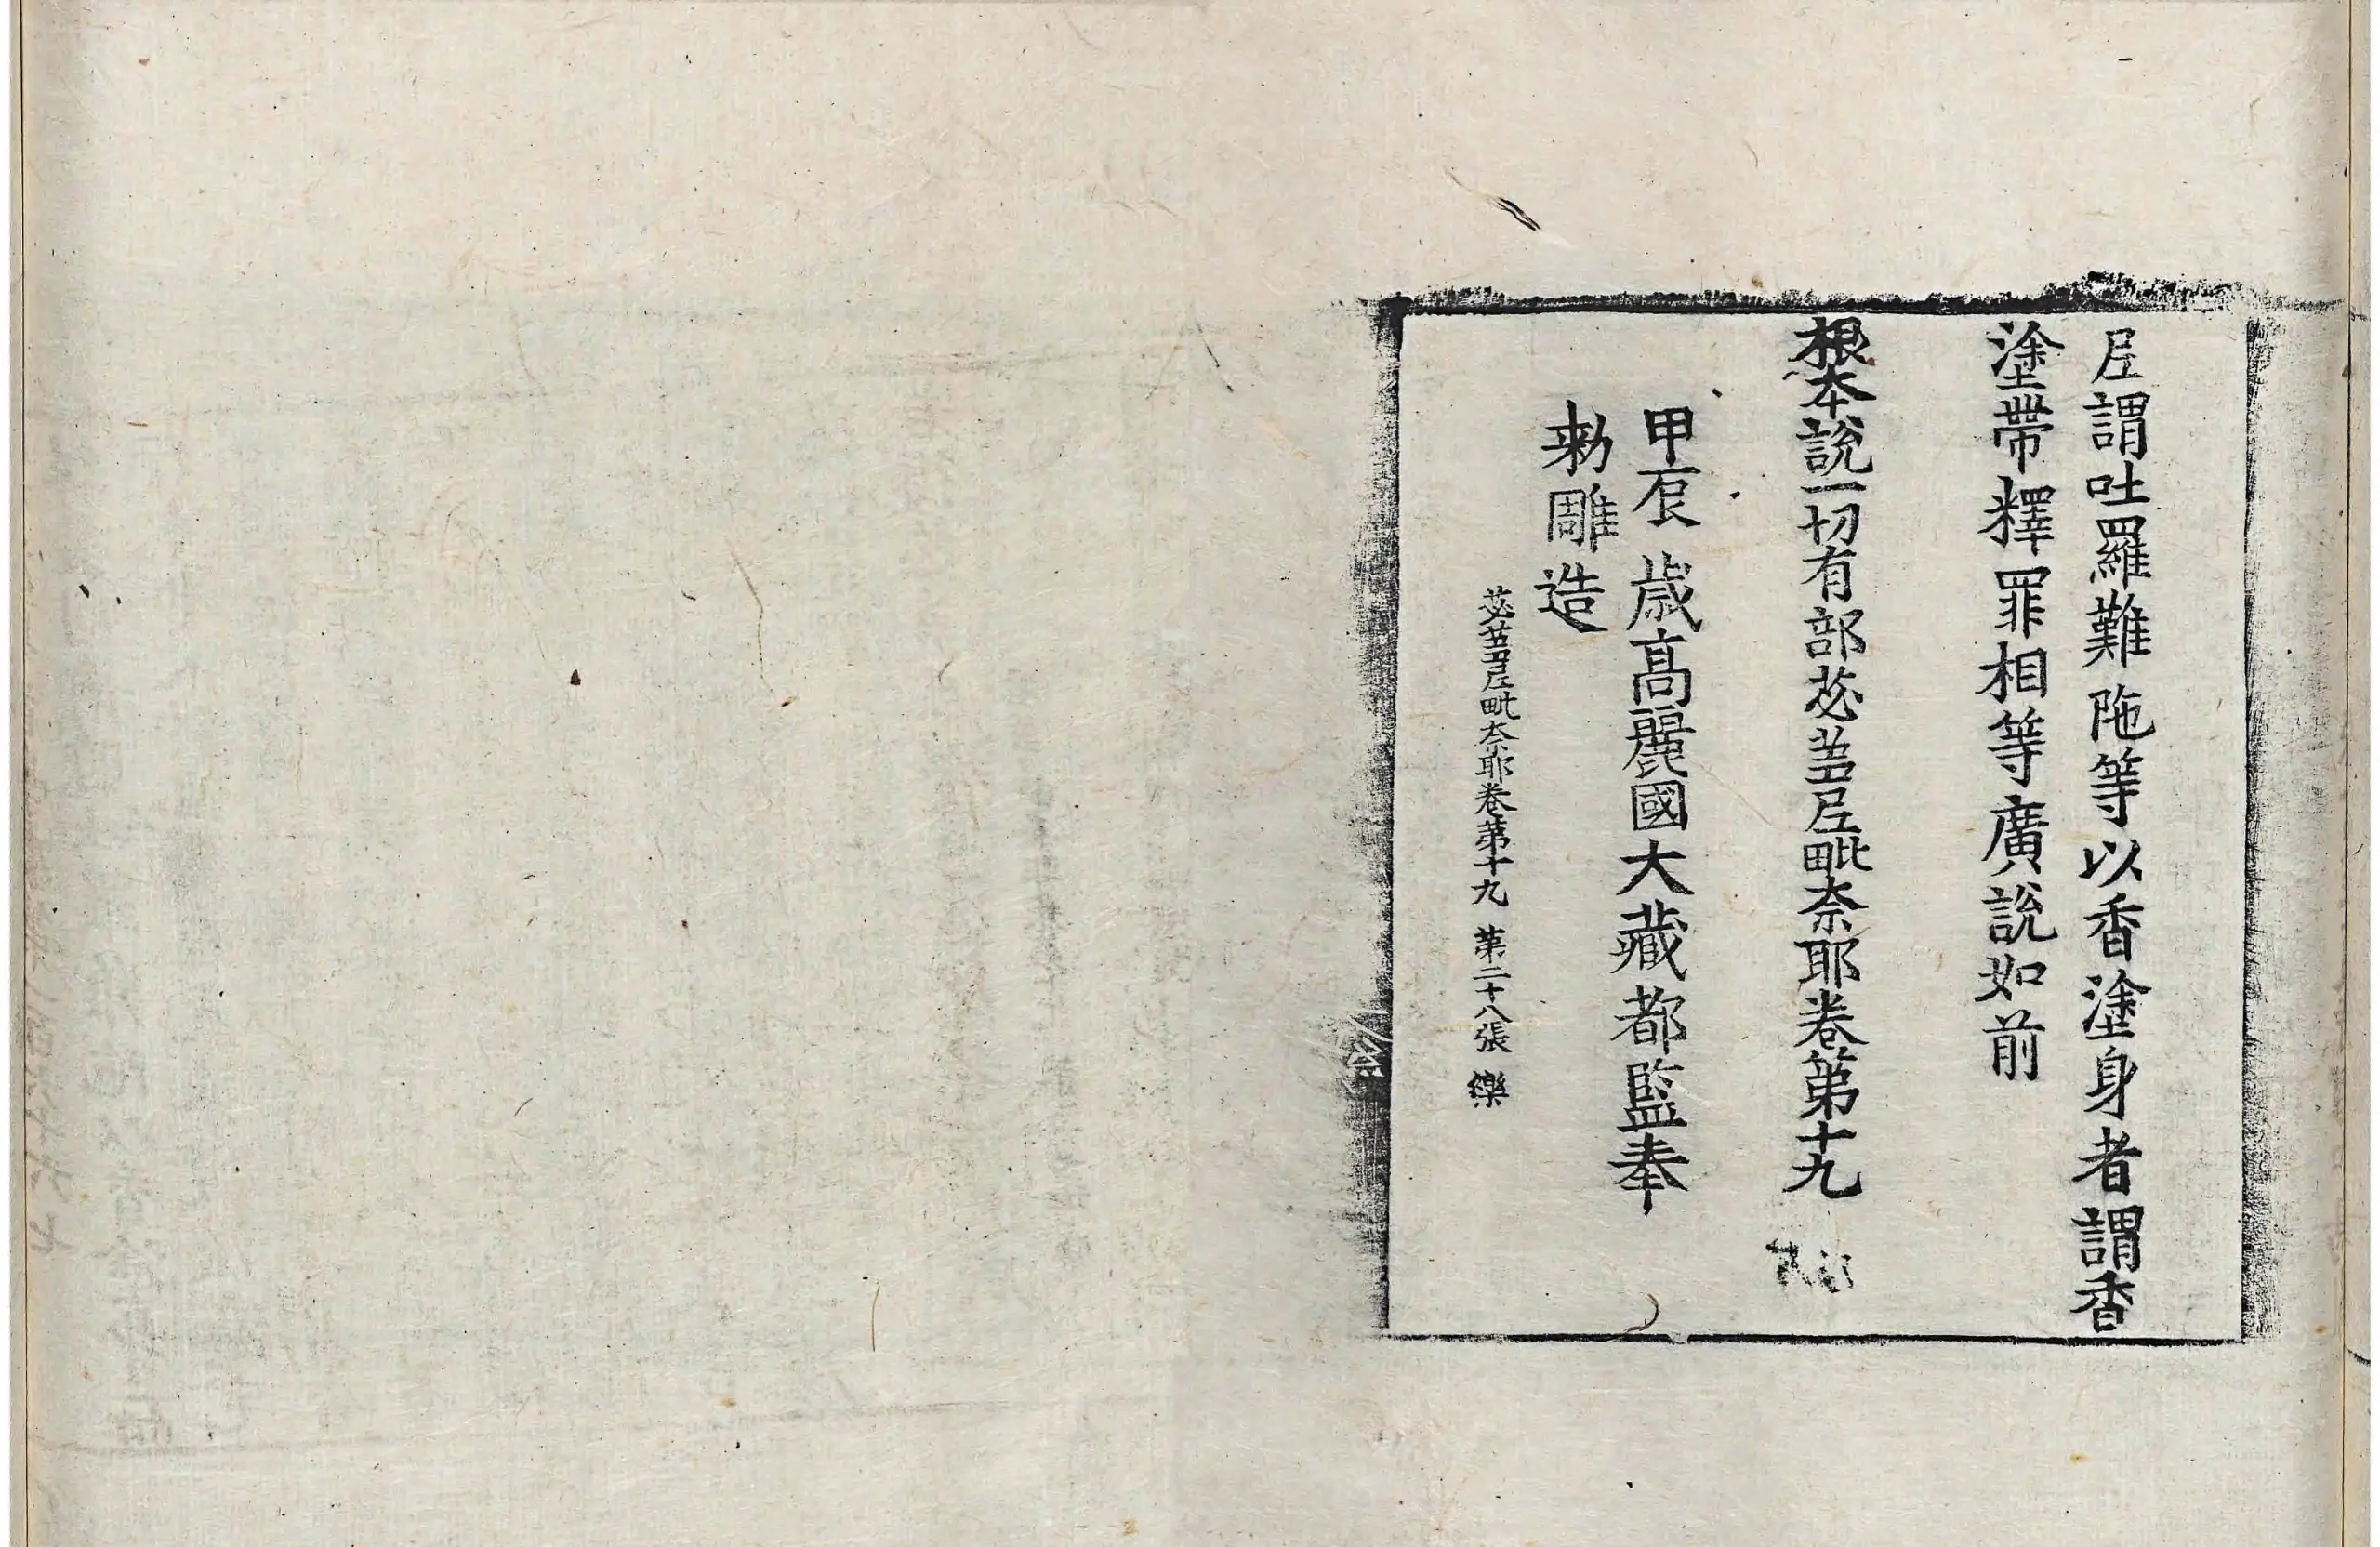 尼謂吐羅難陁等以香塗身者謂香
塗帶釋罪相等廣說如前
根本說一切有部苾芻尼毗奈耶卷第十九
甲辰歲高麗國大藏都監奉
勑雕造
苾芻尼毗奈耶卷第十九 第二十八張 樂